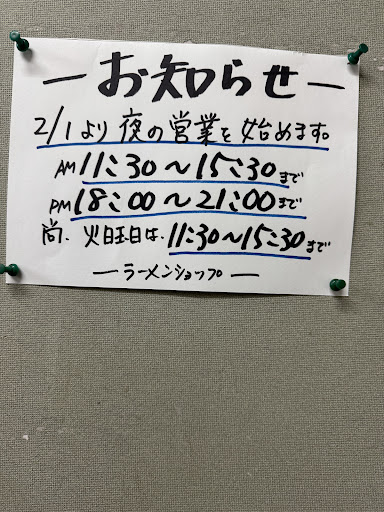 ーお知らせー
2/1より夜の営業を始めます。
AM 11:30〜15:30まで
PM 18:00〜21:00まで
尚、火曜日は、11:30〜15:30まで
ーラーメンショップー